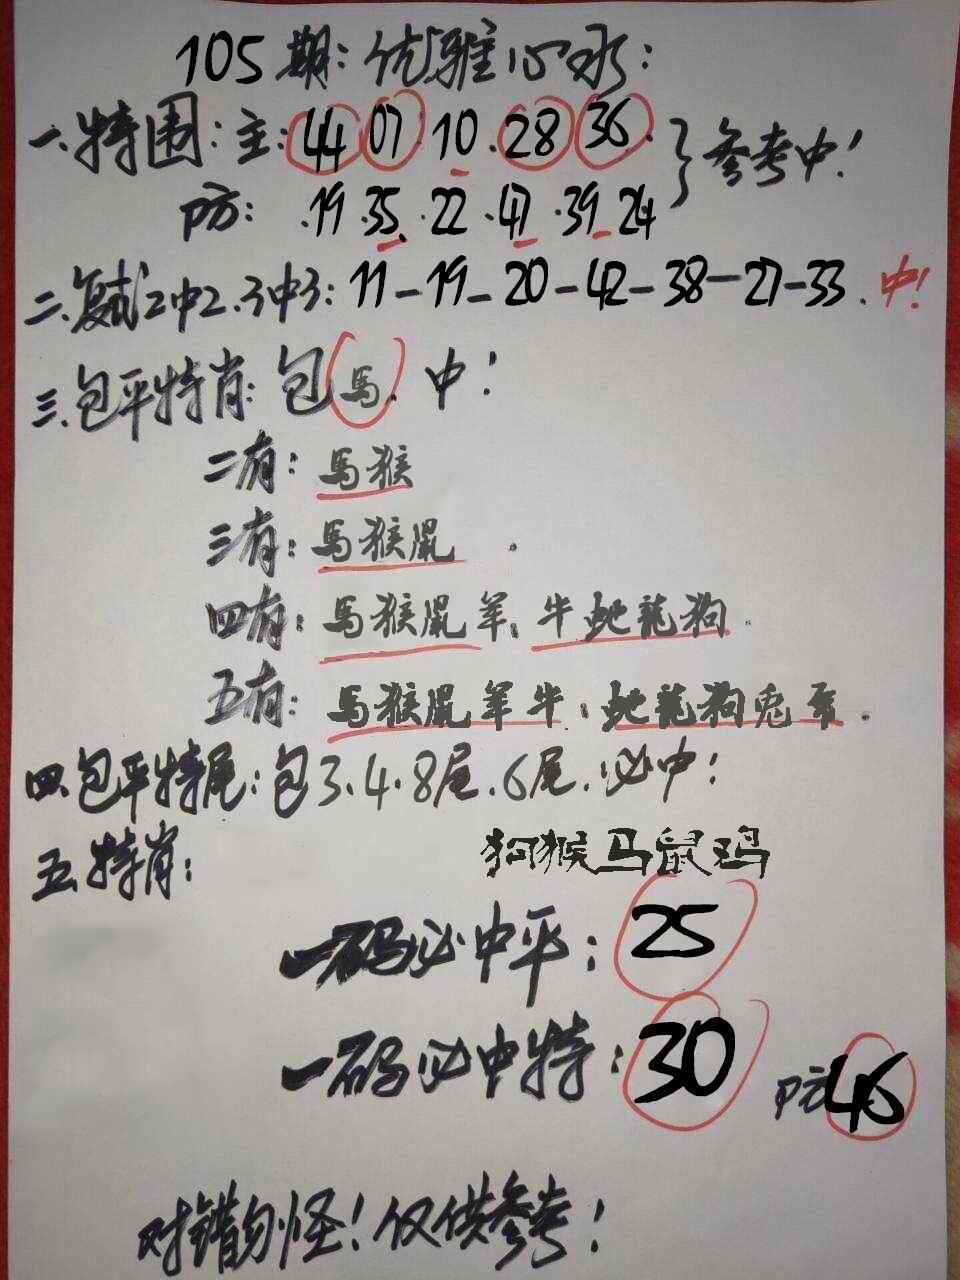 105期:优雅心水:
一.特围:主:44 07·10·28 36·}参考中!
防:·19·35·22·47·39·24
二.复式2中2.3中3:11-19-20-42-38-27-33.中!
三.包平特肖:包馬.中!
二有:馬猴
三有:馬猴鼠.
四有:馬猴鼠羊,牛蛇龍狗.
五有:馬猴鼠羊牛:蛇龍狗兎.
四.包平特尾:包3.4.8尾.6尾.必中!
五.特肖:狗猴马鼠鸡
一码必中平:25
一码必中特:30 防46
对错勿怪!仅供参考!